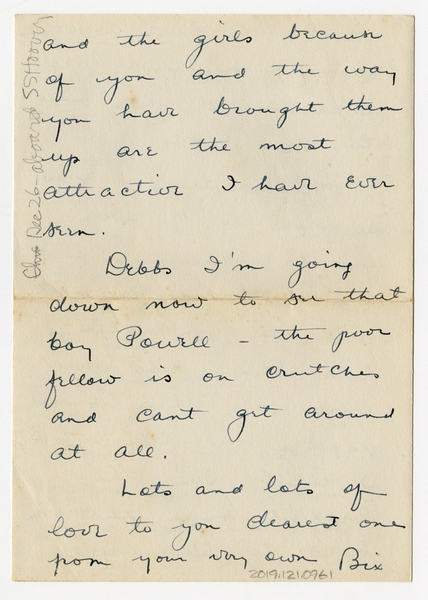 and the girls because
of you and the way
you have brought them
up are the most
attractive I have ever
seen.
Debbs I'm going
down now to see that
boy Powell - the poor
fellow is on crutches
and cant get around
at all.
Lots and lots of
love to you dearest one
from your very own Bix
2019.121.0961
Dec 26 - aboard SS Hoover